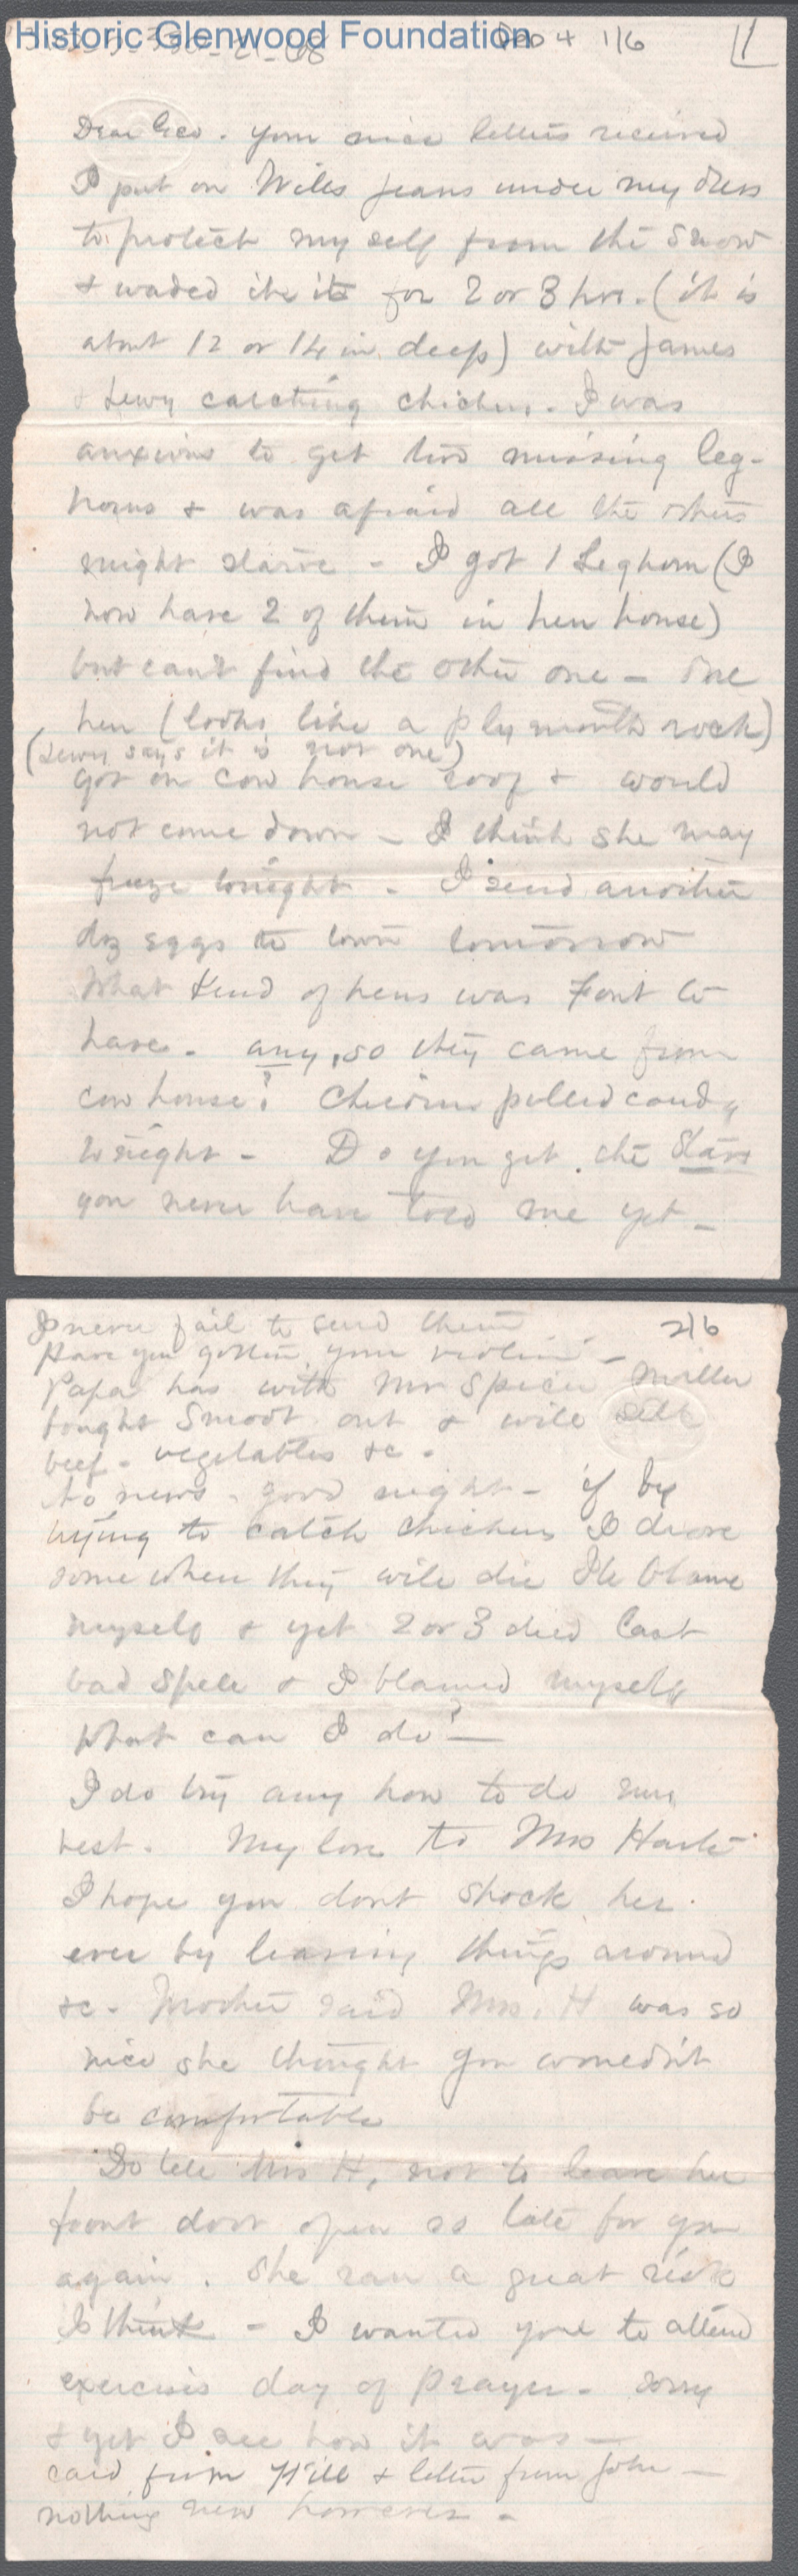 Historic Glenwood Foundation
Feb 4 1/6 1
Dear Geo. your nice letters received
I put on Wills jeans under my dress
to protect my self from the snow
& waded the it for 2 or 3 hrs. (it is
about 12 or 14 in. deep) with James
& Lewy catching chickens. I was
anxious to get two missing leg-
horns & was afraid all the others
might starve - I got 1 Leghorn (I
now have 2 of them in hen house)
but can't find the other one - One
hen (looks like a plymouth rock)
(Lewy says it is not one)
got on cow house roof & would
not come down - I think she may
freeze tonight - I send another
doz eggs to town tomorrow
What kind of hens was Font to
have. any, so they came from
cow house? Children pulled candy
tonight - Do you get the Stars
you never have told me yet -
I never fail to send them 2/6
Have you gotten your violin -
Papa has with Mr Spicer Miller
bought Smoot out & will sell
beef - vegetables &c.
No news - good night - if by
trying to catch chickens I drove
some where they will die I'll blame
myself & yet 2 or 3 died last
bad spell & I blamed myself
What can I do? -
I do try any how to do my
best. My love to Mrs
I hope you dont shock her
ever by leaving things around
&c - Mother said Mrs. H was so
nice she thought you wouldn't
be comfortable
Do tell Mrs H, not to leave her
front door open so late for you
again. She ran a great risk
I think - I wanted you to attend
exercises day of Prayer - sorry
& yet I see how it was -
card from Will & letter from John -
nothing new however -